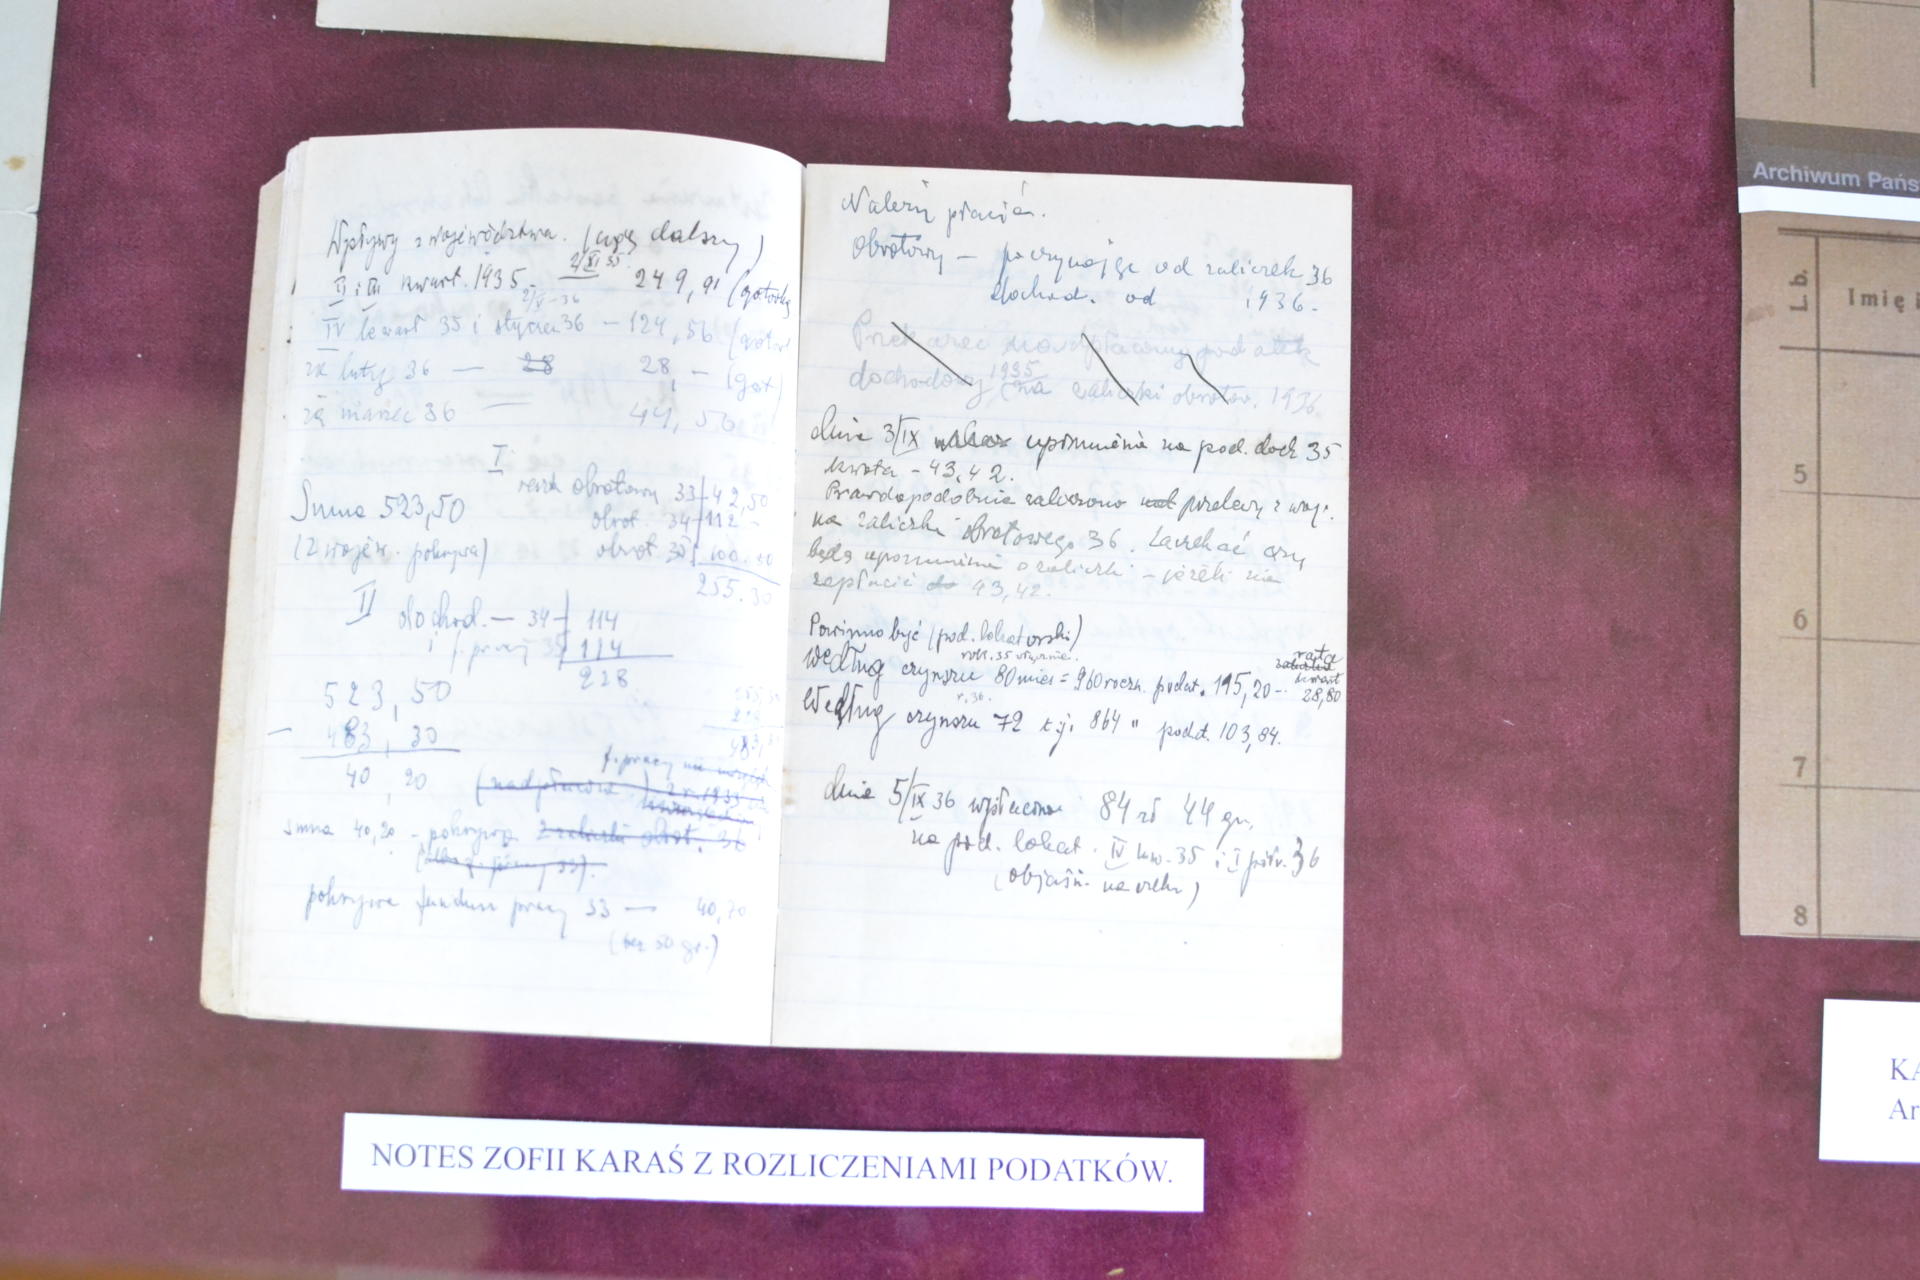 Wpływy z województwa. (ciąg dalszy)
2/XI 35
II i III kwart. 1935 249,91 (gotówką
2/V-36
IV kwart 35 i styczeń 36 - 124,56 (gotów
za luty 36 — 28 28, - (got)
za marzec 36 — 44, 56
I
obrotowy 33 42,50
Suma 523,50 obrot. 34 112 -
(Z wojew. pokrywa) obrot 35 100.80
255.30
II dochod. — 34 114
i f. pracy 35 114
228
523,50
- 483,30
40,20
f. pracy
(nadpłacone) z r. 1933
suma 40,20 - pokrywa zaliczki obrot. 36
pokrywa fundusz pracy 33 — 40,70
(bez 50 gr.)
Należy płacić.
obrotowy - poczynając od zaliczek 36
dochod. od 1936.
Przekazać nadpłacony podatek
dochodowy 1935 na zaliczki obrotow. 1936
dnia 3/IX upomnienie na pod. doch 35
kwota - 43,42.
Prawdopodobnie zaliczono przelewy z woj.
na zaliczki obrotowego 36. Zaczekać czy
będą upomnienia o zaliczki - jeżeli nie
zapłacić 43,42.
Powinno być (pod. lokatorski)
rok. 35 włącznie.
według czynszu 80 mies = 960 roczn. podat. 115,20 -
rata
kwart
28,80
r. 36.
Według czynszu 72 t.j. 864 " podat. 103,84.
dnia 5/IX 36 wpłacono 84 zł 44 gr.
na pod. lokat. IV kw. 35 i I półr. 36
(objaśn. na
Archiwum Pańs
Lb.
Imię i
5
6
7
8
NOTES ZOFII KARAŚ Z ROZLICZENIAMI PODATKÓW.
KA
Ar